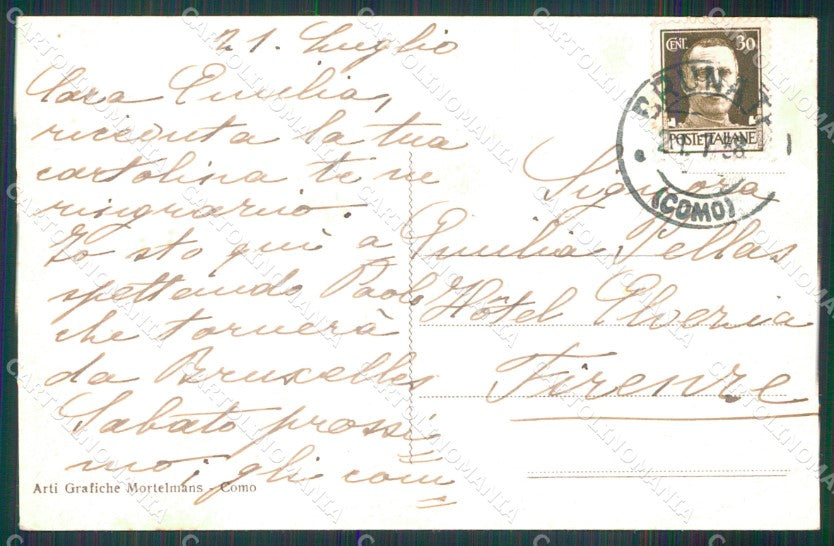 21. Luglio
Cara Emilia,
ricevuta la tua
cartolina te ne
ringrazio.
Io sto qui a
spettando Paolo
che tornerà
da Bruxelles
Sabato prossi
mo; gli com
Arti Grafiche Mortelmans - Como
CENT. 30
POSTE ITALIANE
BRUNATE
(COMO)
Signora
Emilia Pellas
Hôtel Elvezia
Firenze
CARTOLINOMANIA